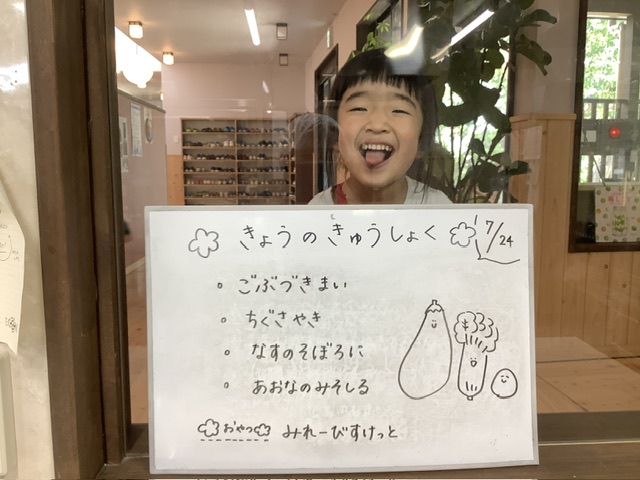 きょうのきゅうしょく 7/24
ごぶづきまい
ちぐさやき
なすのそぼろに
あおなのみそしる
おやつ みれーびすけっと